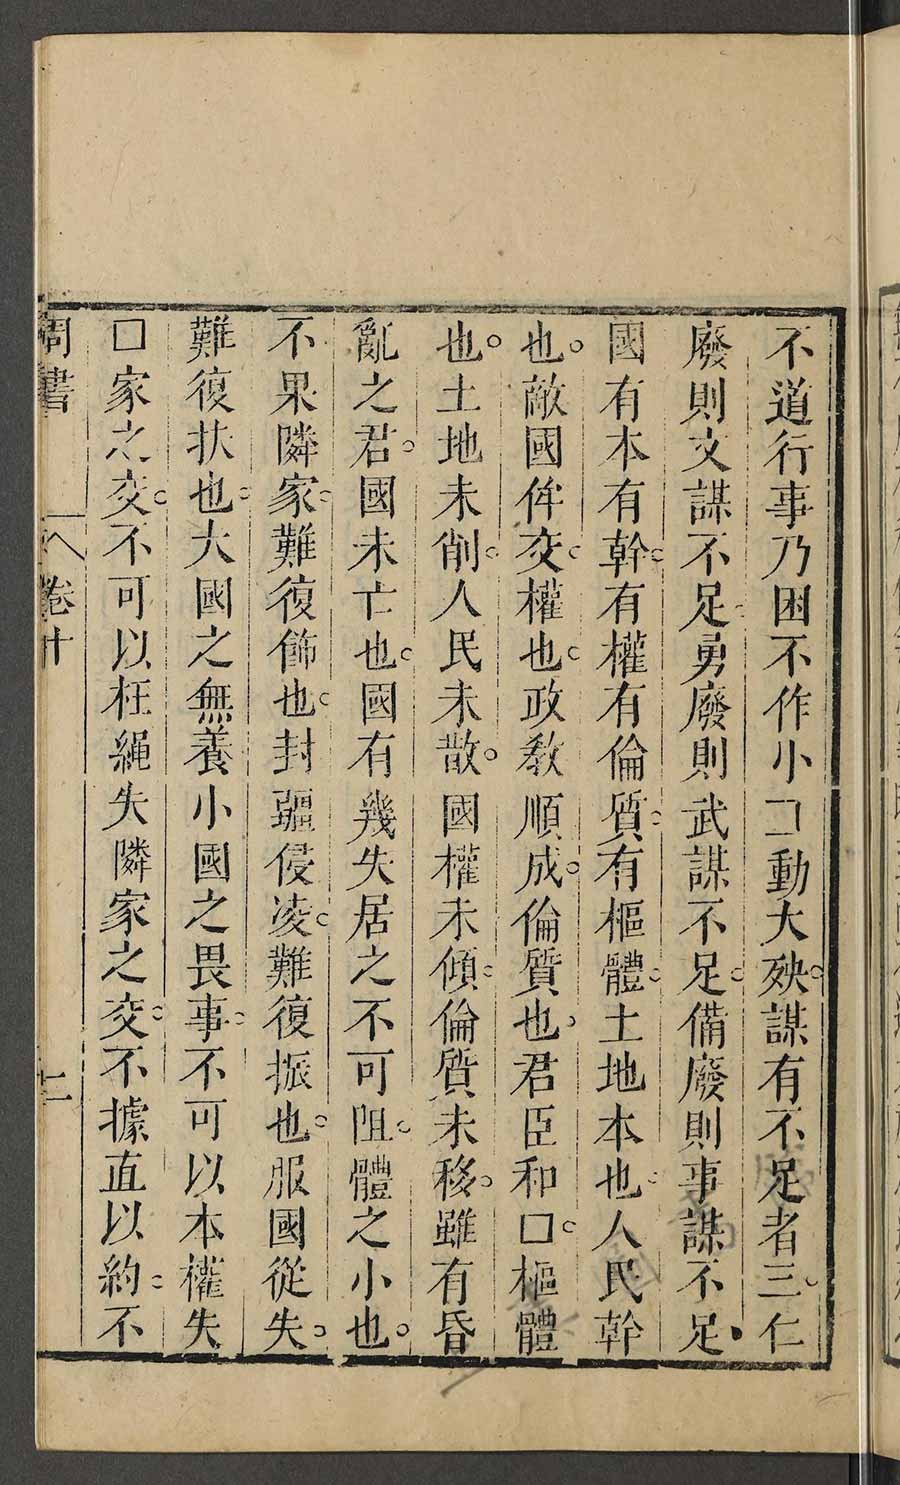 不道行事乃困不作小□動大殃謀有不足者三仁
廢則文謀不足勇廢則武謀不足備廢則事謀不足
國有本有幹有權有倫質有樞體土地本也人民幹
也敵國侔交權也政教順成倫質也君臣和□樞體
也土地未削人民未散國權未傾倫質未移雖有昏
亂之君國未亡也國有幾失居之不可阻體之小也
不果隣家難復飾也封疆侵凌難復振也服國從失
難復扶也大國之無養小國之畏事不可以本權失
□家之交不可以枉繩失隣家之交不據直以約不
周書 卷十 二